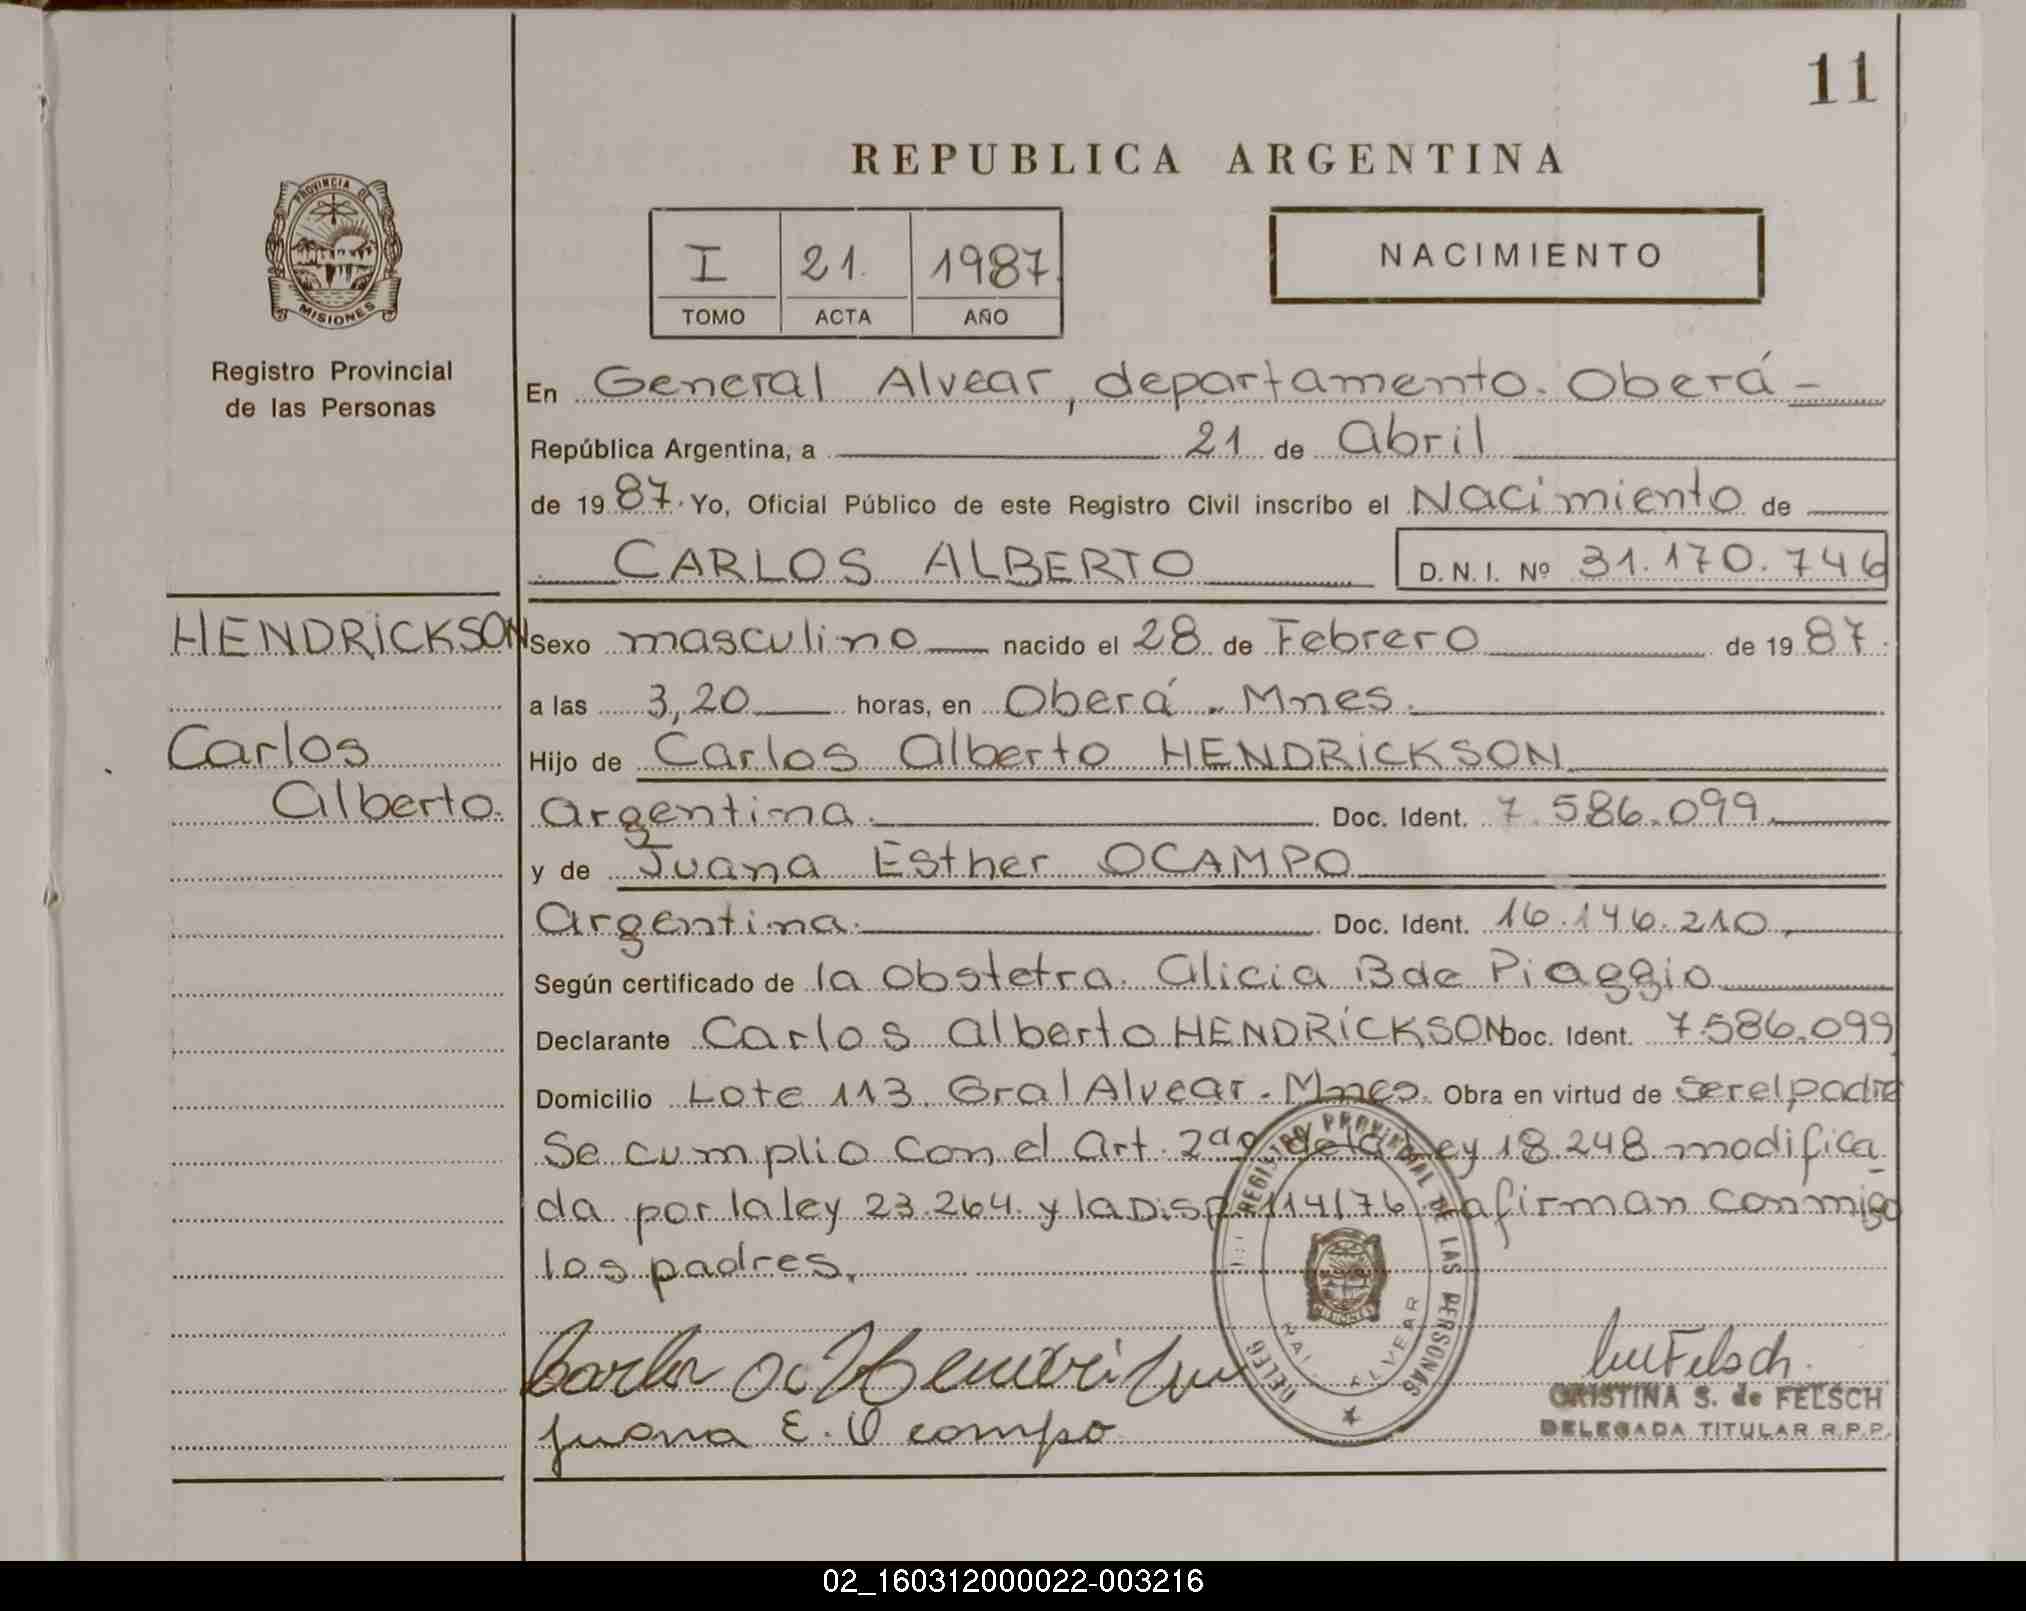 11
REPUBLICA ARGENTINA
PROVINCIA DE
MISIONES
Registro Provincial
de las Personas
I 21. 1987.
TOMO ACTA AÑO
NACIMIENTO
En General Alvear, departamento. Oberá -
República Argentina, a 21 de Abril
de 1987. Yo, Oficial Público de este Registro Civil inscribo el Nacimiento de
CARLOS ALBERTO D.N.I. Nº 31.170.746
HENDRICKSON
Carlos
Alberto.
Sexo masculino nacido el 28 de Febrero de 1987.
a las 3,20 horas, en Oberá. Mnes.
Hijo de Carlos Alberto HENDRICKSON
Argentina. Doc. Ident. 7.586.099
y de Juana Esther OCAMPO
Argentina. Doc. Ident. 16.146.210,
Según certificado de la Obstetra. Alicia B de Piaggio
Declarante Carlos Alberto HENDRICKSON Doc. Ident. 7.586.099
Domicilio Lote 113. Gral Alvear. Mnes. Obra en virtud de ser el padre
Se cumplio con el Art. 2do de la Ley 18.248 modifica_
da por la ley 23.264 y la Disp. 114/76 firman conmigo
los padres.
REGISTRO PROVINCIAL DE LAS PERSONAS
DELEG
ALVEAR
MISIONES
Juana E. Ocampo
CRISTINA S. de FELSCH
DELEGADA TITULAR R.P.P.
02_160312000022-003216